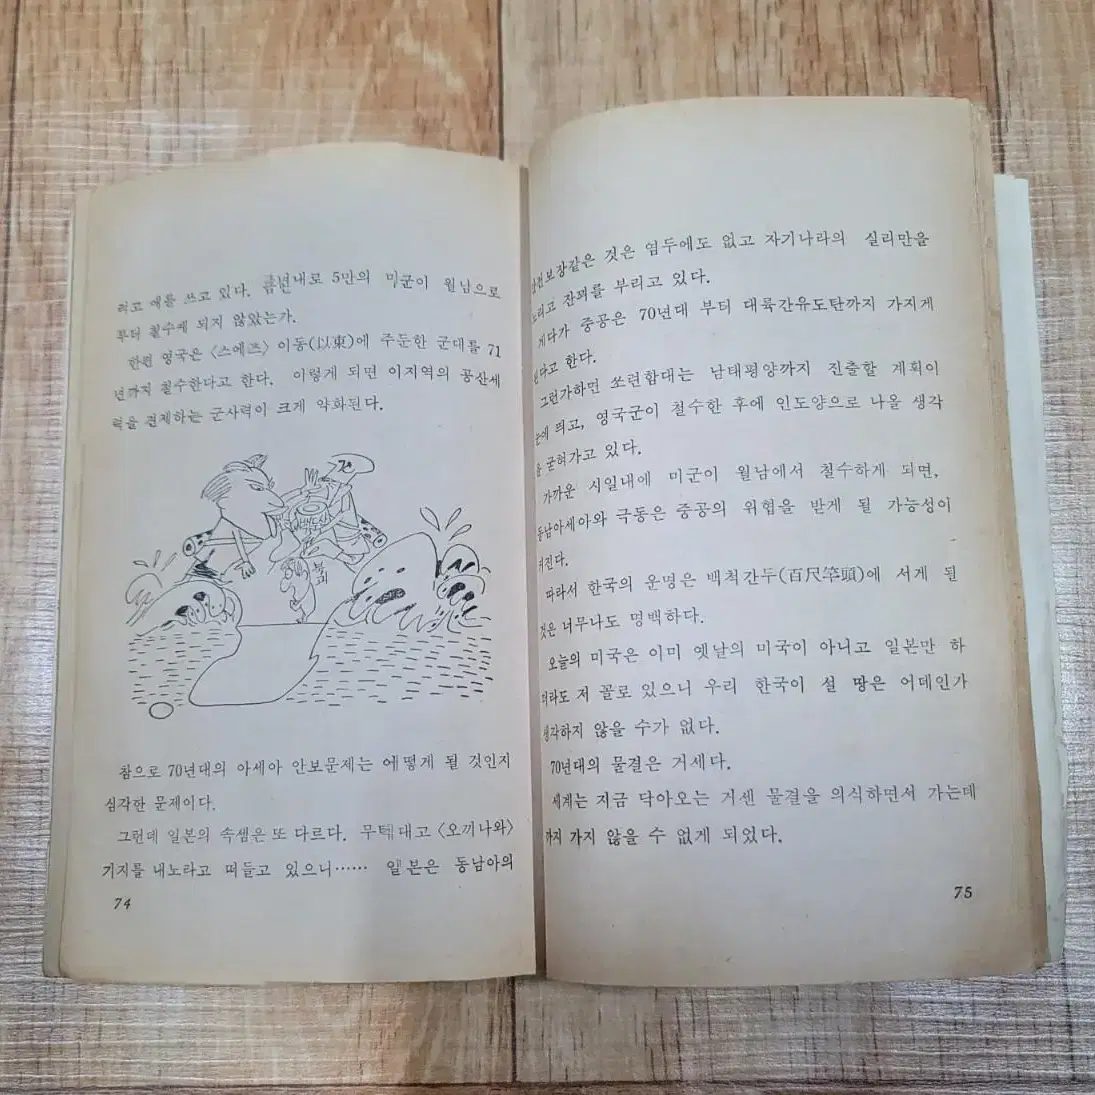 려고 애를 쓰고 있다. 금년내로 5만의 미군이 월남으로
부터 철수케 되지 않았는가.
한편 영국은 〈스에즈〉 이동(以東)에 주둔한 군대를 71
년까지 철수한다고 한다. 이렇게 되면 이지역의 공산세
력을 견제하는 군사력이 크게 약화된다.
참으로 70년대의 아세아 안보문제는 어떻게 될 것인지
심각한 문제이다.
그런데 일본의 속셈은 또 다르다. 무턱대고 〈오끼나와〉
기지를 내노라고 떠들고 있으니…… 일본은 동남아의
74
안전보장같은 것은 염두에도 없고 자기나라의 실리만을
노리고 잔꾀를 부리고 있다.
게다가 중공은 70년대 부터 대륙간유도탄까지 가지게
된다고 한다.
그런가하면 쏘련함대는 남태평양까지 진출할 계획이
눈에 띄고, 영국군이 철수한 후에 인도양으로 나올 생각
을 굳혀가고 있다.
가까운 시일내에 미군이 월남에서 철수하게 되면,
동남아세아와 극동은 중공의 위협을 받게 될 가능성이
커진다.
따라서 한국의 운명은 백척간두(百尺竿頭)에 서게 될
것은 너무나도 명백하다.
오늘의 미국은 이미 옛날의 미국이 아니고 일본만 하
더라도 저 꼴로 있으니 우리 한국이 설 땅은 어데인가
생각하지 않을 수가 없다.
70년대의 물결은 거세다.
세계는 지금 닥아오는 거센 물결을 의식하면서 가는데
까지 가지 않을 수 없게 되었다.
75